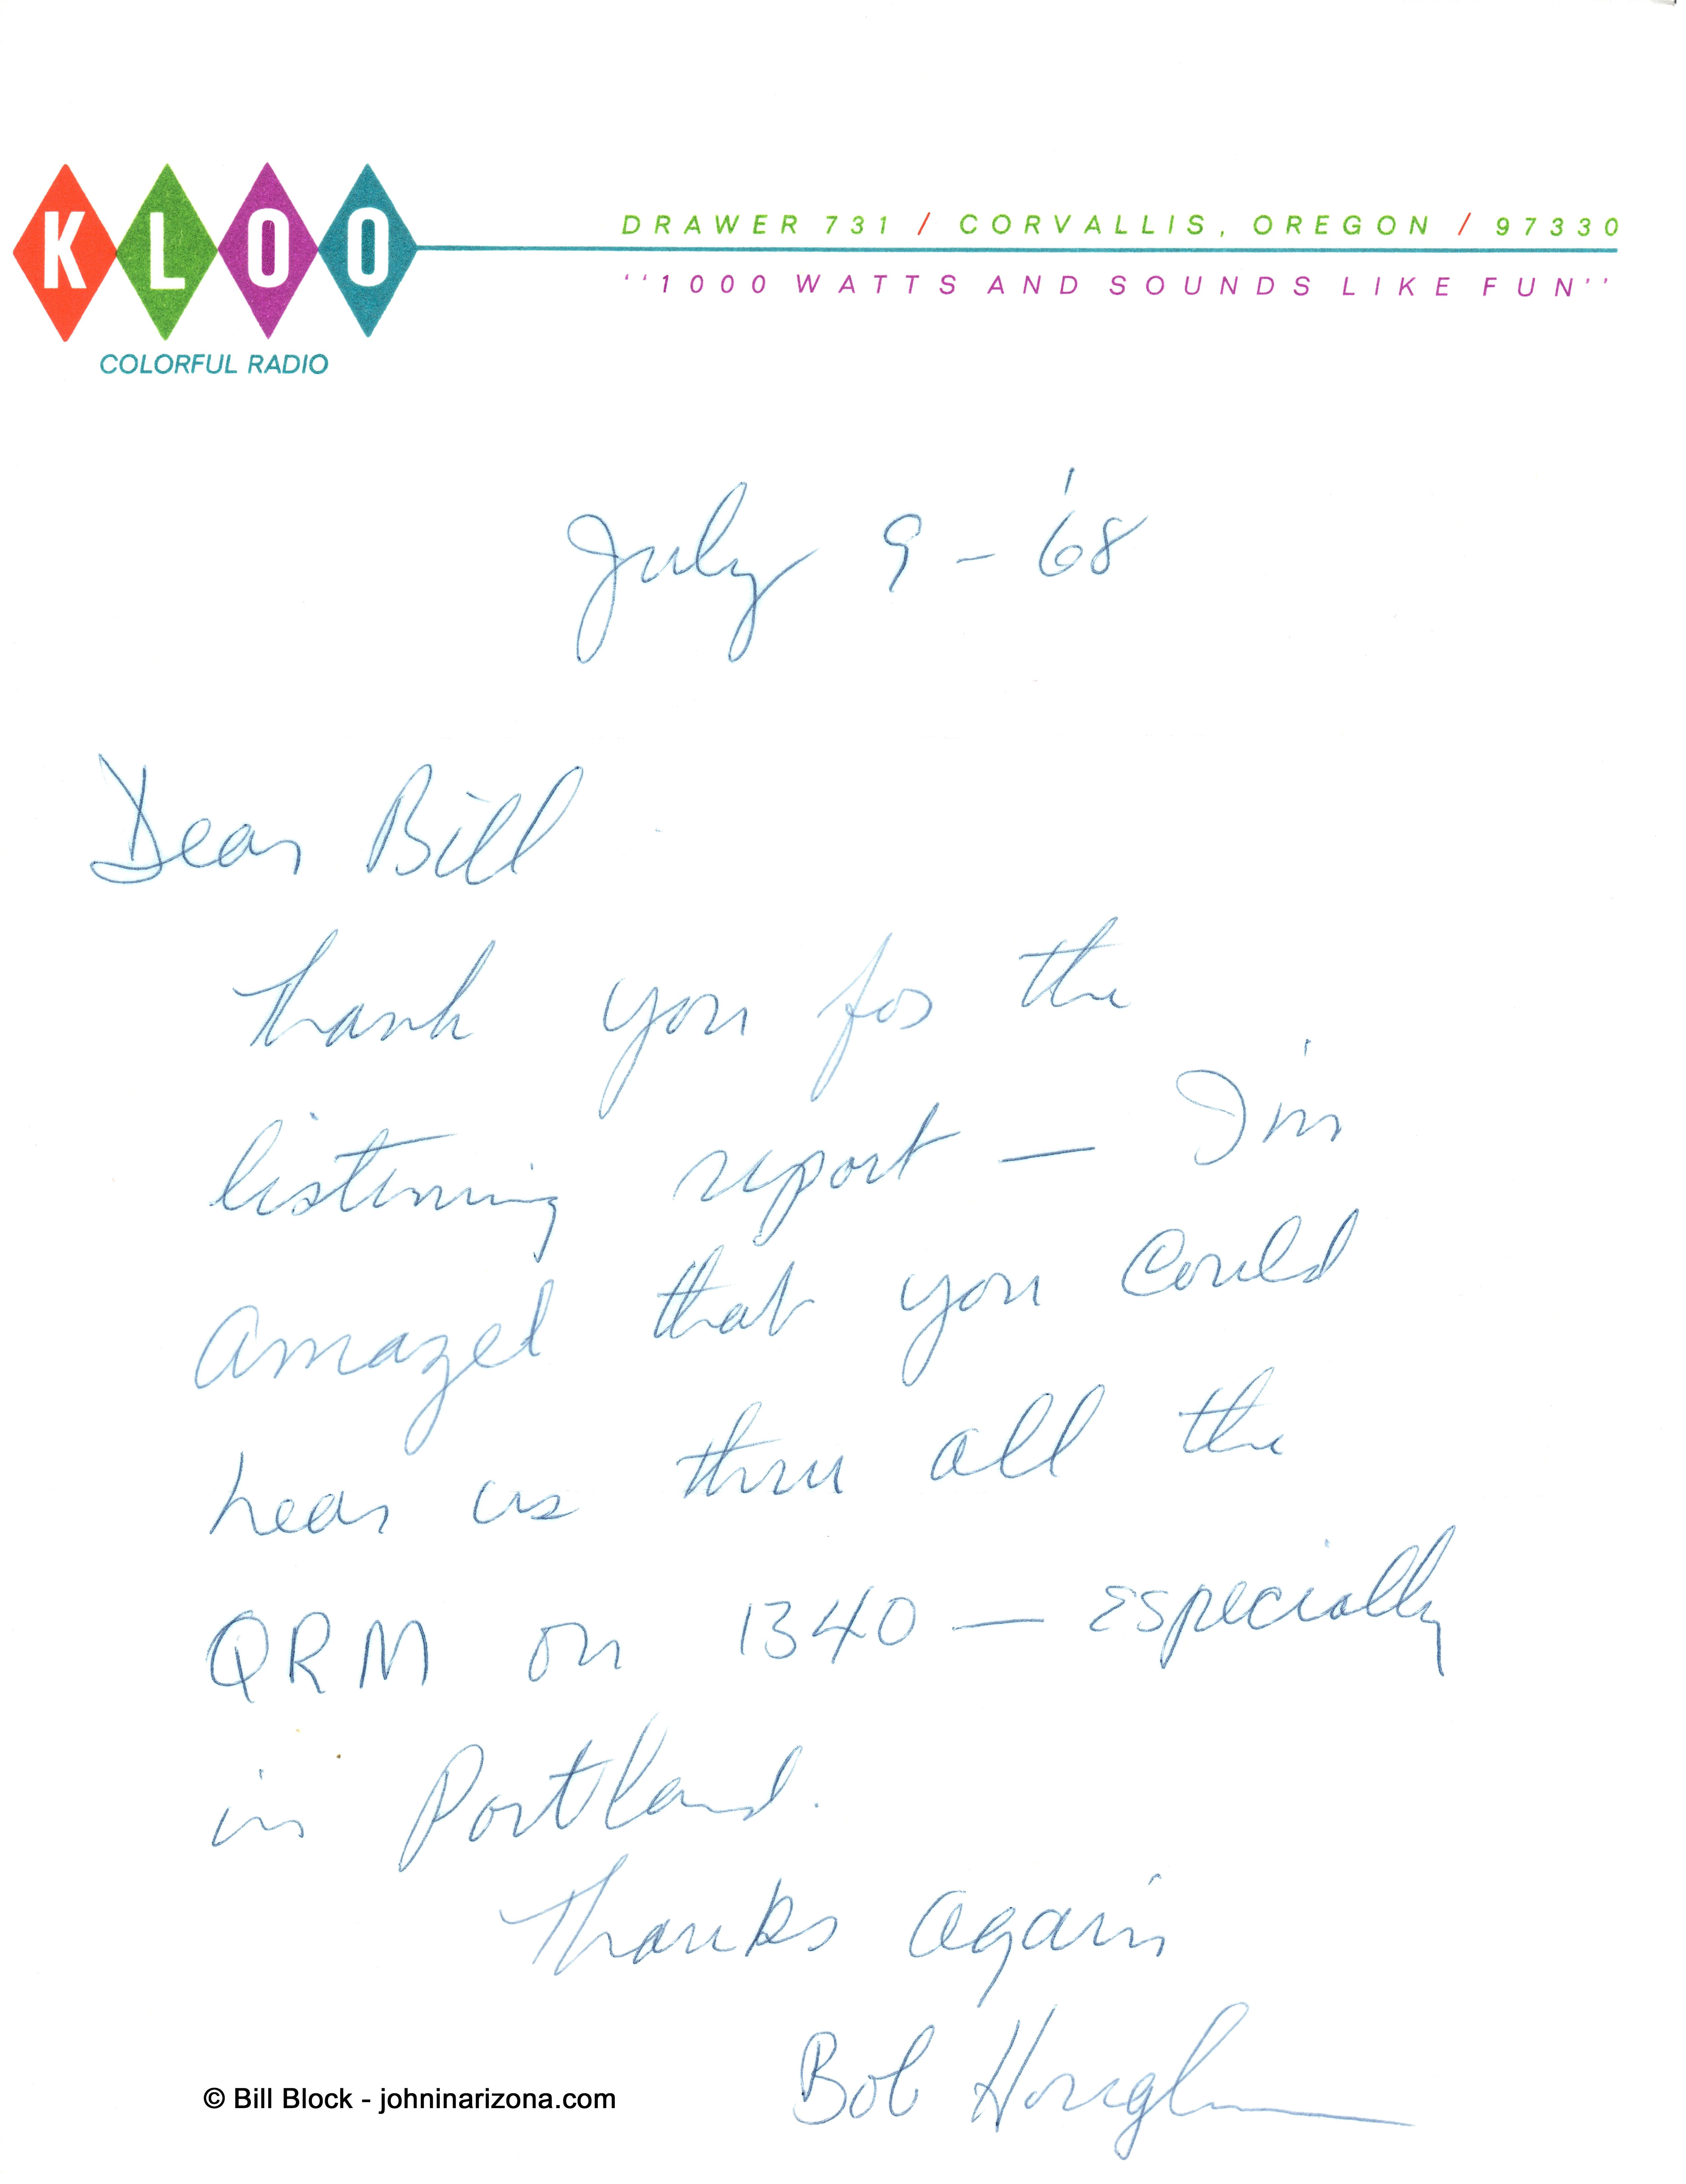 KLOO
COLORFUL RADIO
DRAWER 731 / CORVALLIS, OREGON / 97330
"1000 WATTS AND SOUNDS LIKE FUN"
July 9 - '68
Dear Bill
Thank you for the
listening report — I'm
amazed that you could
hear us thru all the
QRM on 1340 — especially
in Portland.
Thanks again
Bob
© Bill Block - johninarizona.com